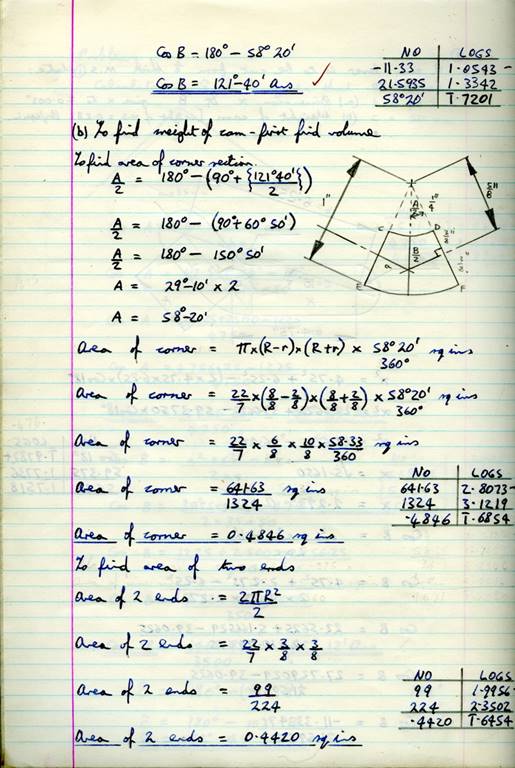 Cos B = 180° - 58° 20'
Cos B = 121°-40' Ans ✓
NO LOGS
-11.33 1.0543-
21.5935 1.3342
58°20' 1̄.7201
(b) To find weight of cam - first find volume
To find area of corner section.
A/2 = 180° - (90° + {121°40'/2})
A/2 = 180° - (90° + 60° 50')
A/2 = 180° - 150° 50'
A = 29°-10' × 2
A = 58°-20'
1"
A/2
1/4"
5/8"
C
D
3/8"
B/2
E
F
Area of corner = π × (R-r) × (R+r) × 58° 20'/360° sq ins
Area of corner = 22/7 × (8/8 - 2/8) × (8/8 + 2/8) × 58°20'/360° sq ins
Area of corner = 22/7 × 6/8 × 10/8 × 58.33/360 sq ins
Area of corner = 641.63/1324 sq ins
NO LOGS
641.63 2.8073-
1324 3.1219
.4846 1̄.6854
Area of corner = 0.4846 sq ins
To find area of two ends
Area of 2 ends = 2πR²/2
Area of 2 ends = 22/7 × 3/8 × 3/8
Area of 2 ends = 99/224
NO LOGS
99 1.9956-
224 2.3502
.4420 1̄.6454
Area of 2 ends = 0.4420 sq ins